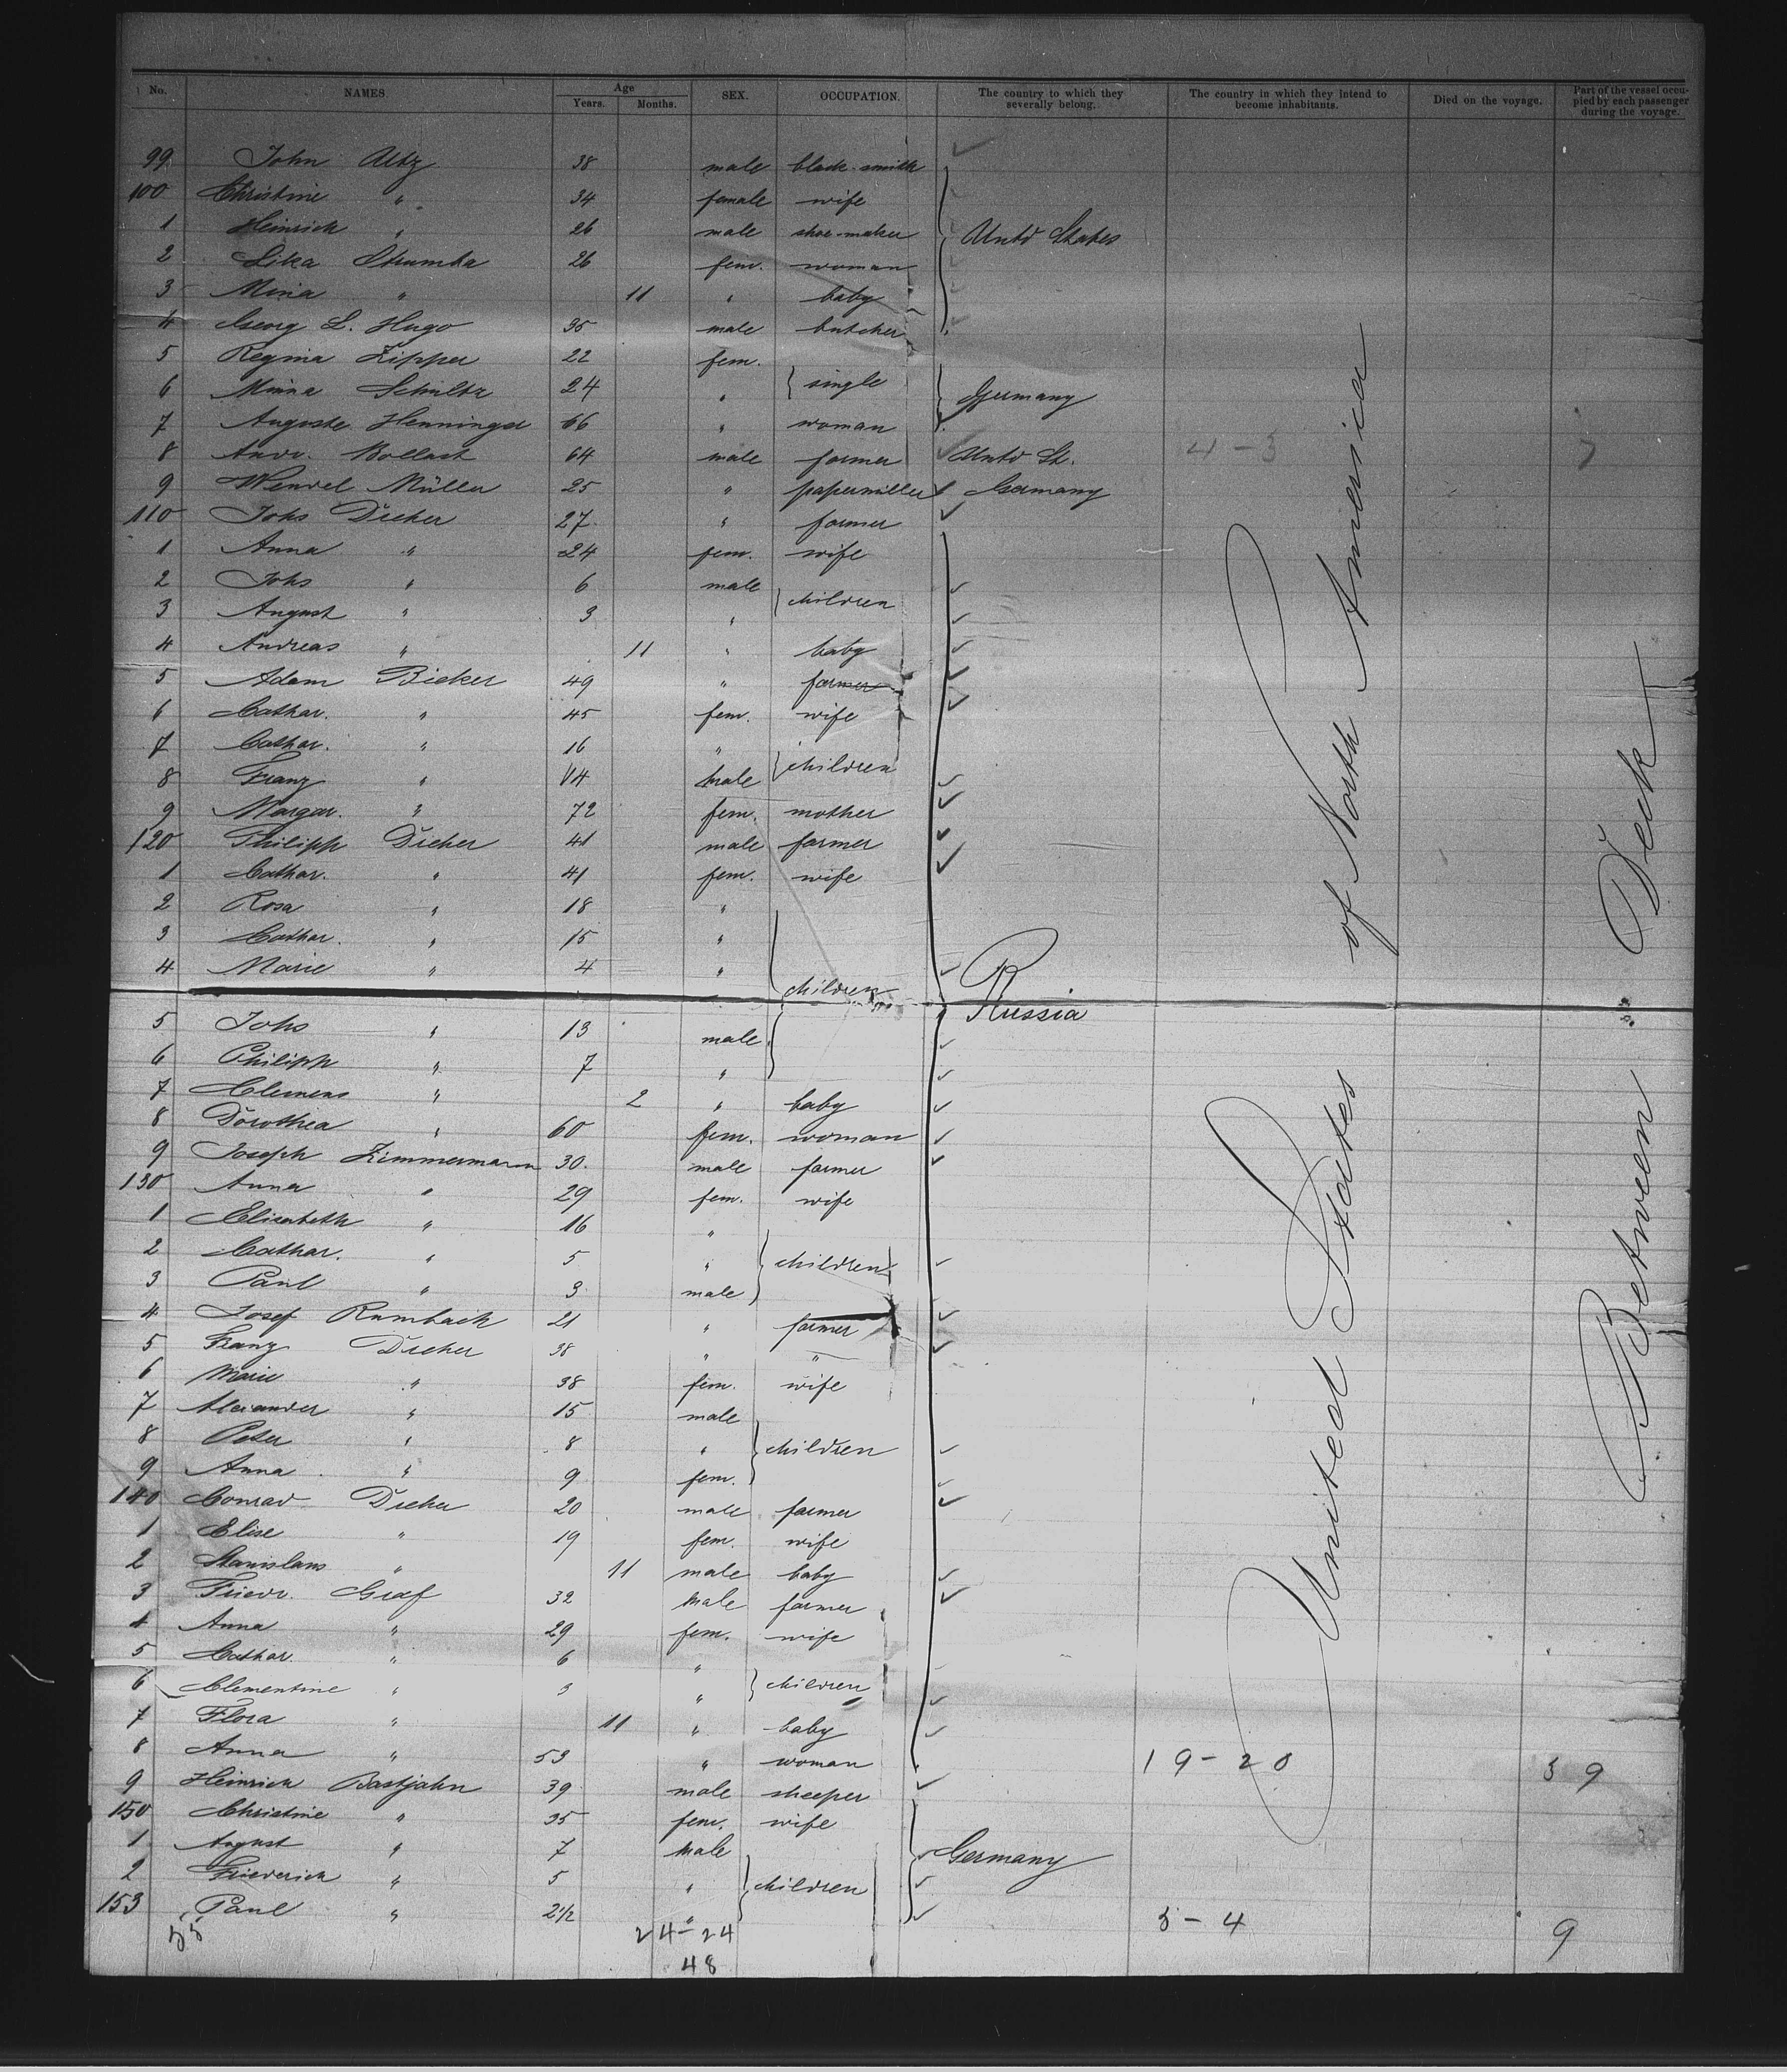 No. NAMES. Age Years. Months. SEX. OCCUPATION. The country to which they severally belong. The country in which they intend to become inhabitants. Died on the voyage. Part of the vessel occupied by each passenger during the voyage.
99 John 38 male black-smith
100 Christine " 34 female wife
1 Heinrich " 26 male shoe-maker Untd States
2 26 fem. woman
3 Mina " 11 " baby
4 Georg L. Hugo 35 male butcher
5 Regina Zipper 22 fem.
6 Minna Schultz 24 " } single } Germany
7 Auguste 66 " woman
8 Andr. 64 male farmer Untd St. 4-3 7
9 Wendel Müller 25 " papermiller Germany
110 Johs Dreher 27 " farmer
1 Anna " 24 fem. wife
2 Johs " 6 male
3 August " 3 " } children
4 Andreas " 11 " baby
5 Adam Bieker 49 " farmer
6 Cathar. " 45 fem. wife
7 Cathar. " 16 "
8 Franz " 14 male } children
9 Margar. " 72 fem. mother
120 Philipp Dreher 41 male farmer
1 Cathar. " 41 fem. wife
2 Rosa " 18 "
3 Cathar. " 15 "
4 Marie " 4 "
children Russia
5 Johs " 13 male
6 Philipp " 7 "
7 Clemens " 2 " baby
8 Dorothea " 60 fem. woman
9 Joseph Zimmermann 30. male farmer
130 Anna " 29 fem. wife
1 Elisabeth " 16 "
2 Cathar. " 5 " } children
3 Paul " 3 male
4 Josef Rumbach 21 " farmer
5 Franz Dreher 38 " "
6 Marie " 38 fem. wife
7 Alexander " 15 male
8 Peter " 8 " } children
9 Anna " 9 fem.
140 Conrad Dreher 20 male farmer
1 Elise " 19 fem. wife
2 Stanislaus " 11 male baby
3 Friedr. Graf 32 male farmer
4 Anna " 29 fem. wife
5 Cathar. " 6 "
6 Clementine " 3 " } children
7 Flora " 11 " baby
8 Anna " 53 " woman 19-20 39
9 Heinrich Bastjahn 39 male
150 Christine " 35 fem. wife
1 August " 7 male Germany
2 Friederich " 5 " } children
153 Paul " 2 1/2 " 5-4 9
55 24-24
48
United States of North America
Between Deck